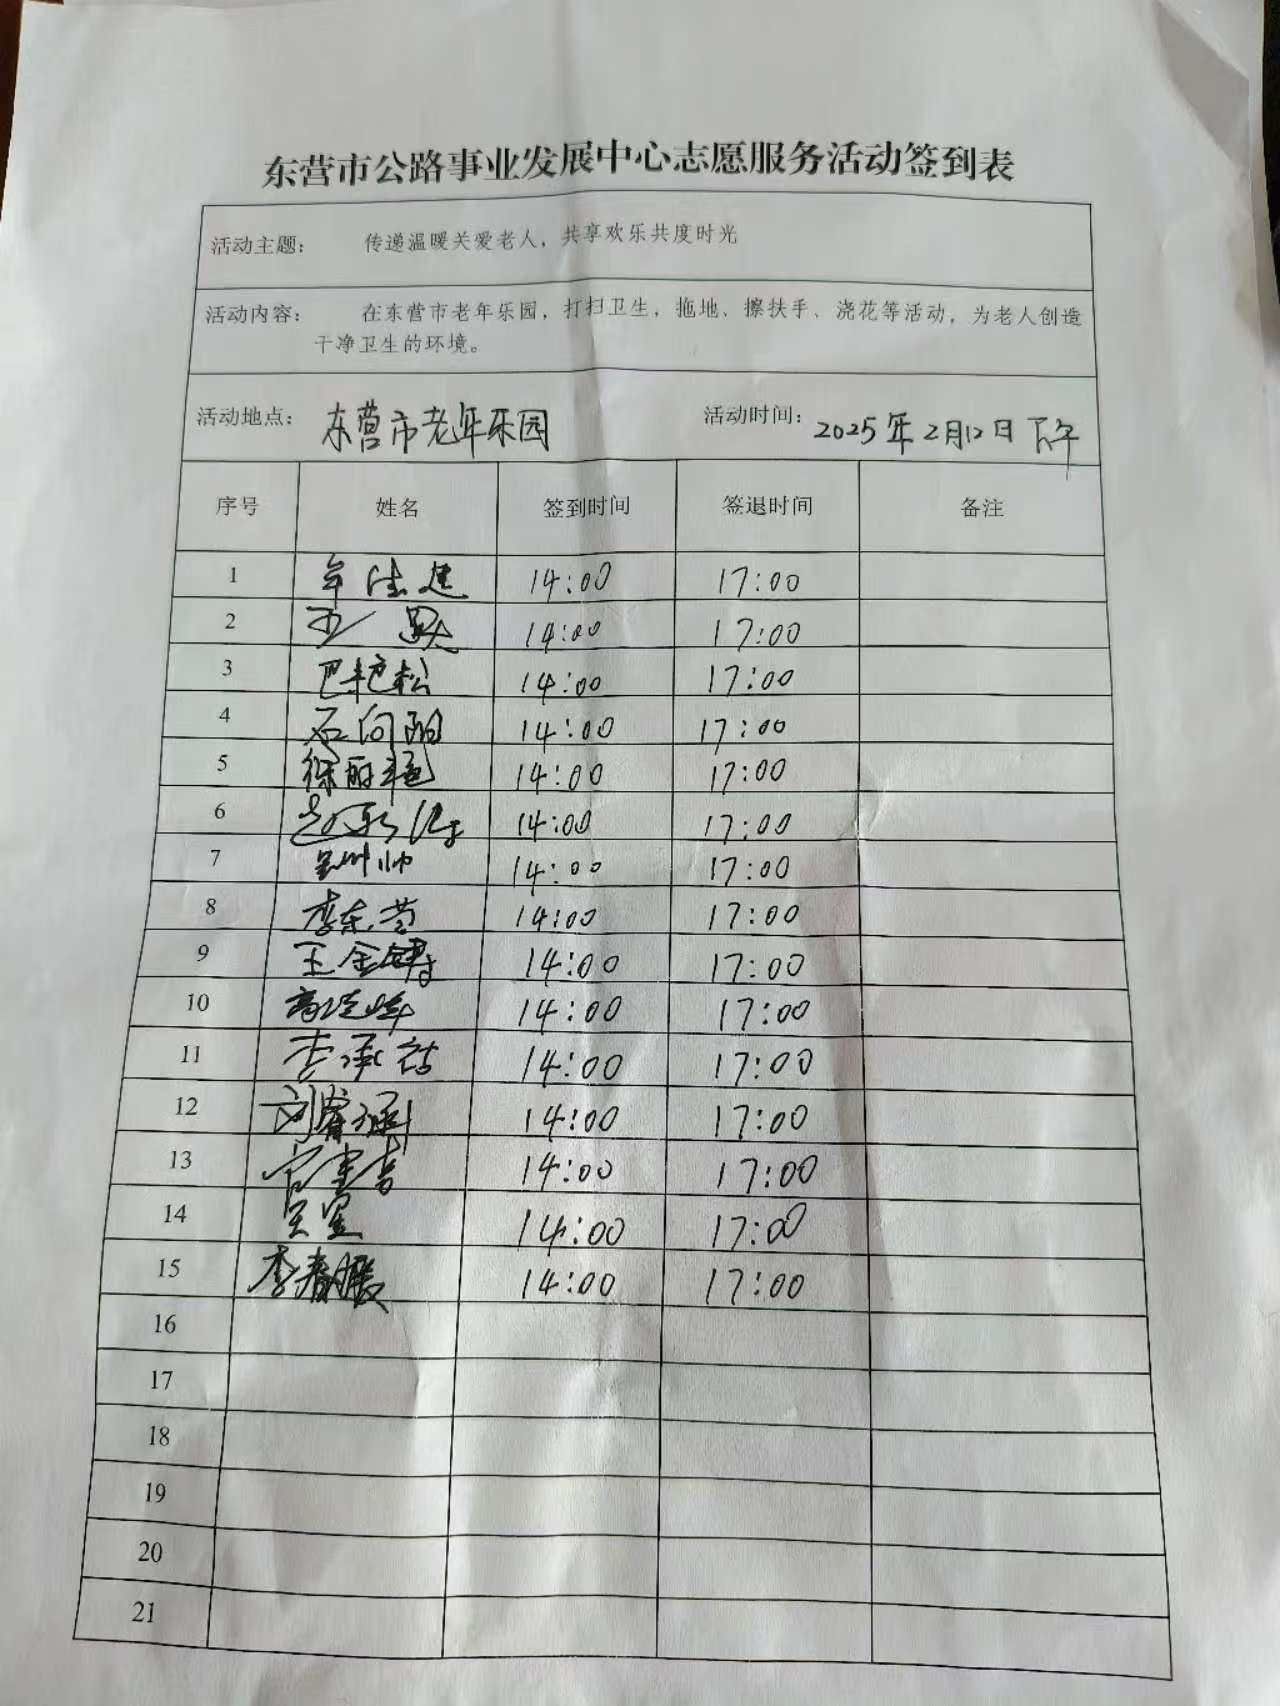 东营市公路事业发展中心志愿服务活动签到表
活动主题： 传递温暖关爱老人，共享欢乐共度时光
活动内容： 在东营市老年乐园，打扫卫生，拖地、擦扶手、浇花等活动，为老人创造
干净卫生的环境。
活动地点： 东营市老年乐园 活动时间： 2025年2月12日下午
序号 姓名 签到时间 签退时间 备注
1 14:00 17:00
2 14:00 17:00
3 巴艳松 14:00 17:00
4 石向阳 14:00 17:00
5 徐丽艳 14:00 17:00
6 14:00 17:00
7 吴帅帅 14:00 17:00
8 李东营 14:00 17:00
9 王金锋 14:00 17:00
10 14:00 17:00
11 李承喆 14:00 17:00
12 14:00 17:00
13 14:00 17:00
14 14:00 17:00
15 李春暖 14:00 17:00
16
17
18
19
20
21